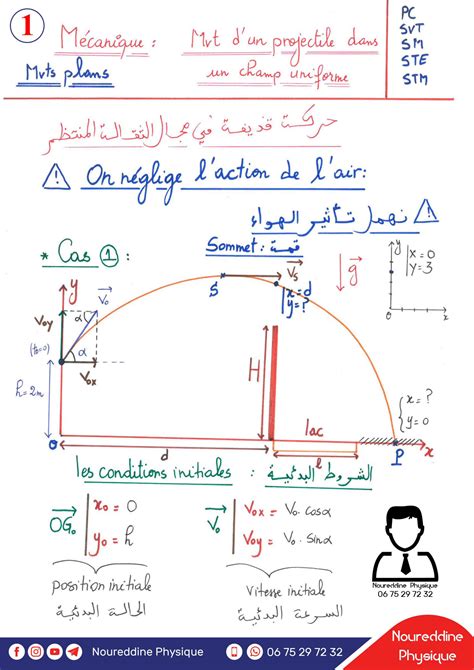 1
Mécanique : Mvt d'un projectile dans
Mvts plans un champ uniforme
PC
SVT
SM
STE
STM
حركة قذيفة في مجال الثقالة المنتظم
⚠ On néglige l'action de l'air:
نهمل تأثير الهواء ⚠
* Cas 1 :
Sommet : قمة
y
V₀
V₀y
α
(t₀=0)
α
V₀x
h=2m
S
Vs
x=d
y=?
g
y
x=0
y=3
x
H
lac
x=?
y=0
O
d
l
P
x
les conditions initiales : الشروط البدئية
OG₀ x₀ = 0
y₀ = h
V₀ V₀x = V₀.cosα
V₀y = V₀.sinα
position initiale
الحالة البدئية
Vitesse initiale
السرعة البدئية
Noureddine Physique
06 75 29 72 32
Noureddine Physique 06 75 29 72 32
Noureddine
Physique